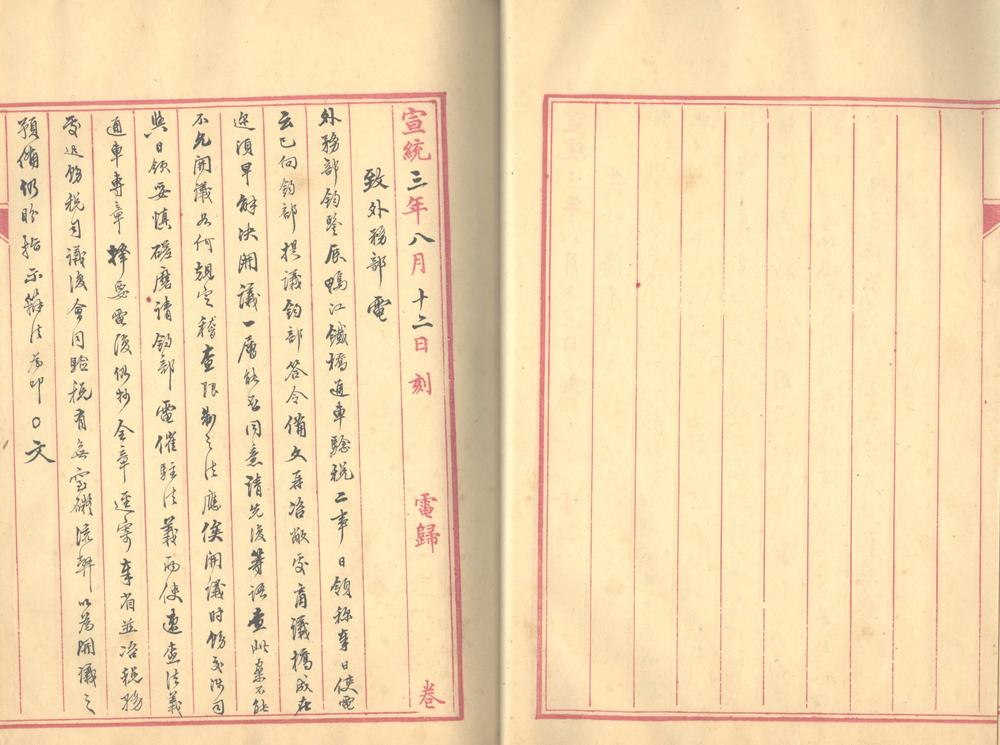 宣統三年八月十二日刻 電歸 卷
致外務部電
外務部鈞鑒辰鴨江鐵橋通車驗稅二事日領稱奉日使電
云已向鈞部提議鈞部答令備文再洽敝處商議橋成在
迩須早解決開議一層能否同意請先復等語查此案不能
不允開議如何規定稽查限制之法應俟開議時飭交涉司
與日領妥慎磋磨請鈞部電催駐法義兩使速查法義
通車專章擇要電復仍抄全章逕寄奉省並洽稅務
處迅飭稅司議復會同驗稅有無窒礙添輈以為開議之
預備仍盼指示辦法為叩〇文